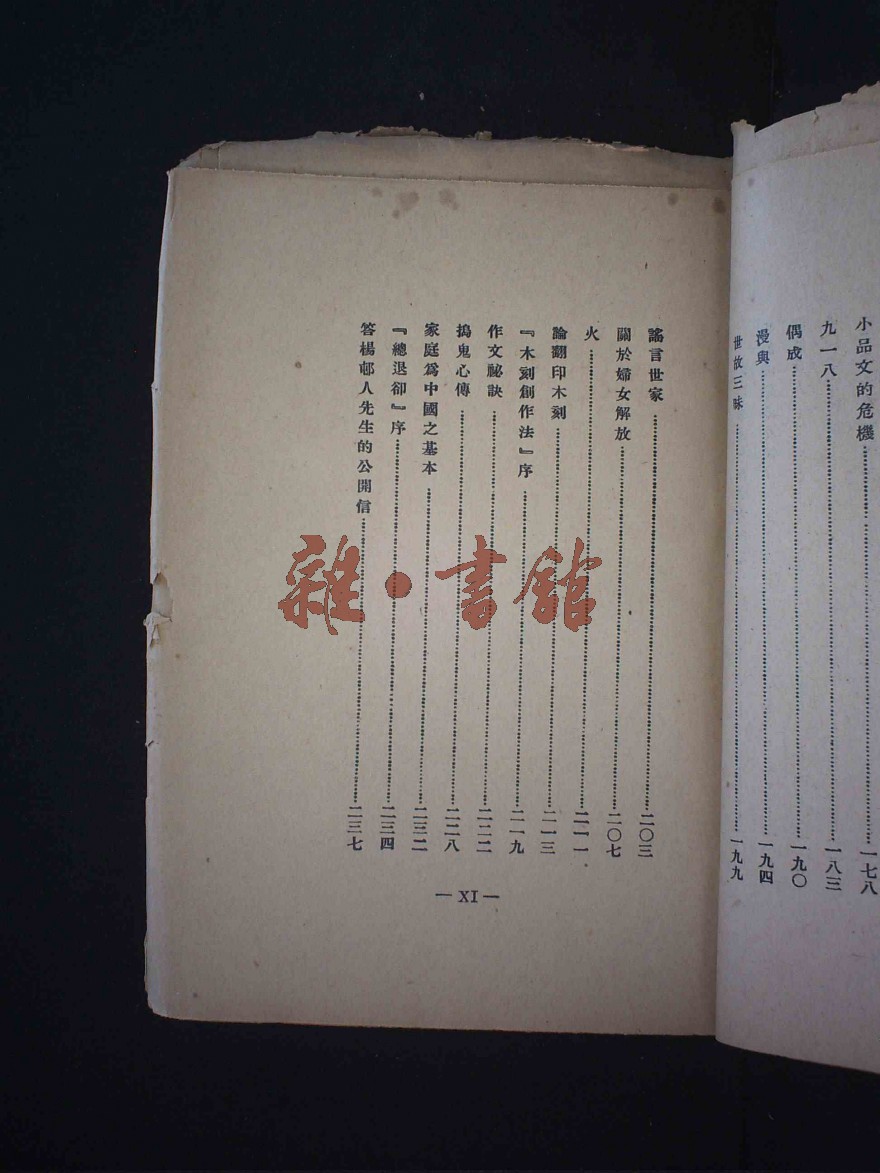 小品文的危機……一七八
九一八……一八三
偶成……一九〇
漫與……一九四
世故三昧……一九九
謠言世家……二〇三
關於婦女解放……二〇七
火……二一一
論翻印木刻……二一三
『木刻創作法』序……二一九
作文祕訣……二二二
搗鬼心傳……二二八
家庭爲中國之基本……二三二
『總退卻』序……二三四
答楊邨人先生的公開信……二三七
— XI —
雜·書館